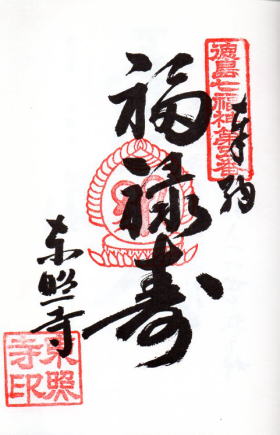 奉納
徳島七福神第六番
福禄寿
東照寺
東照
寺印